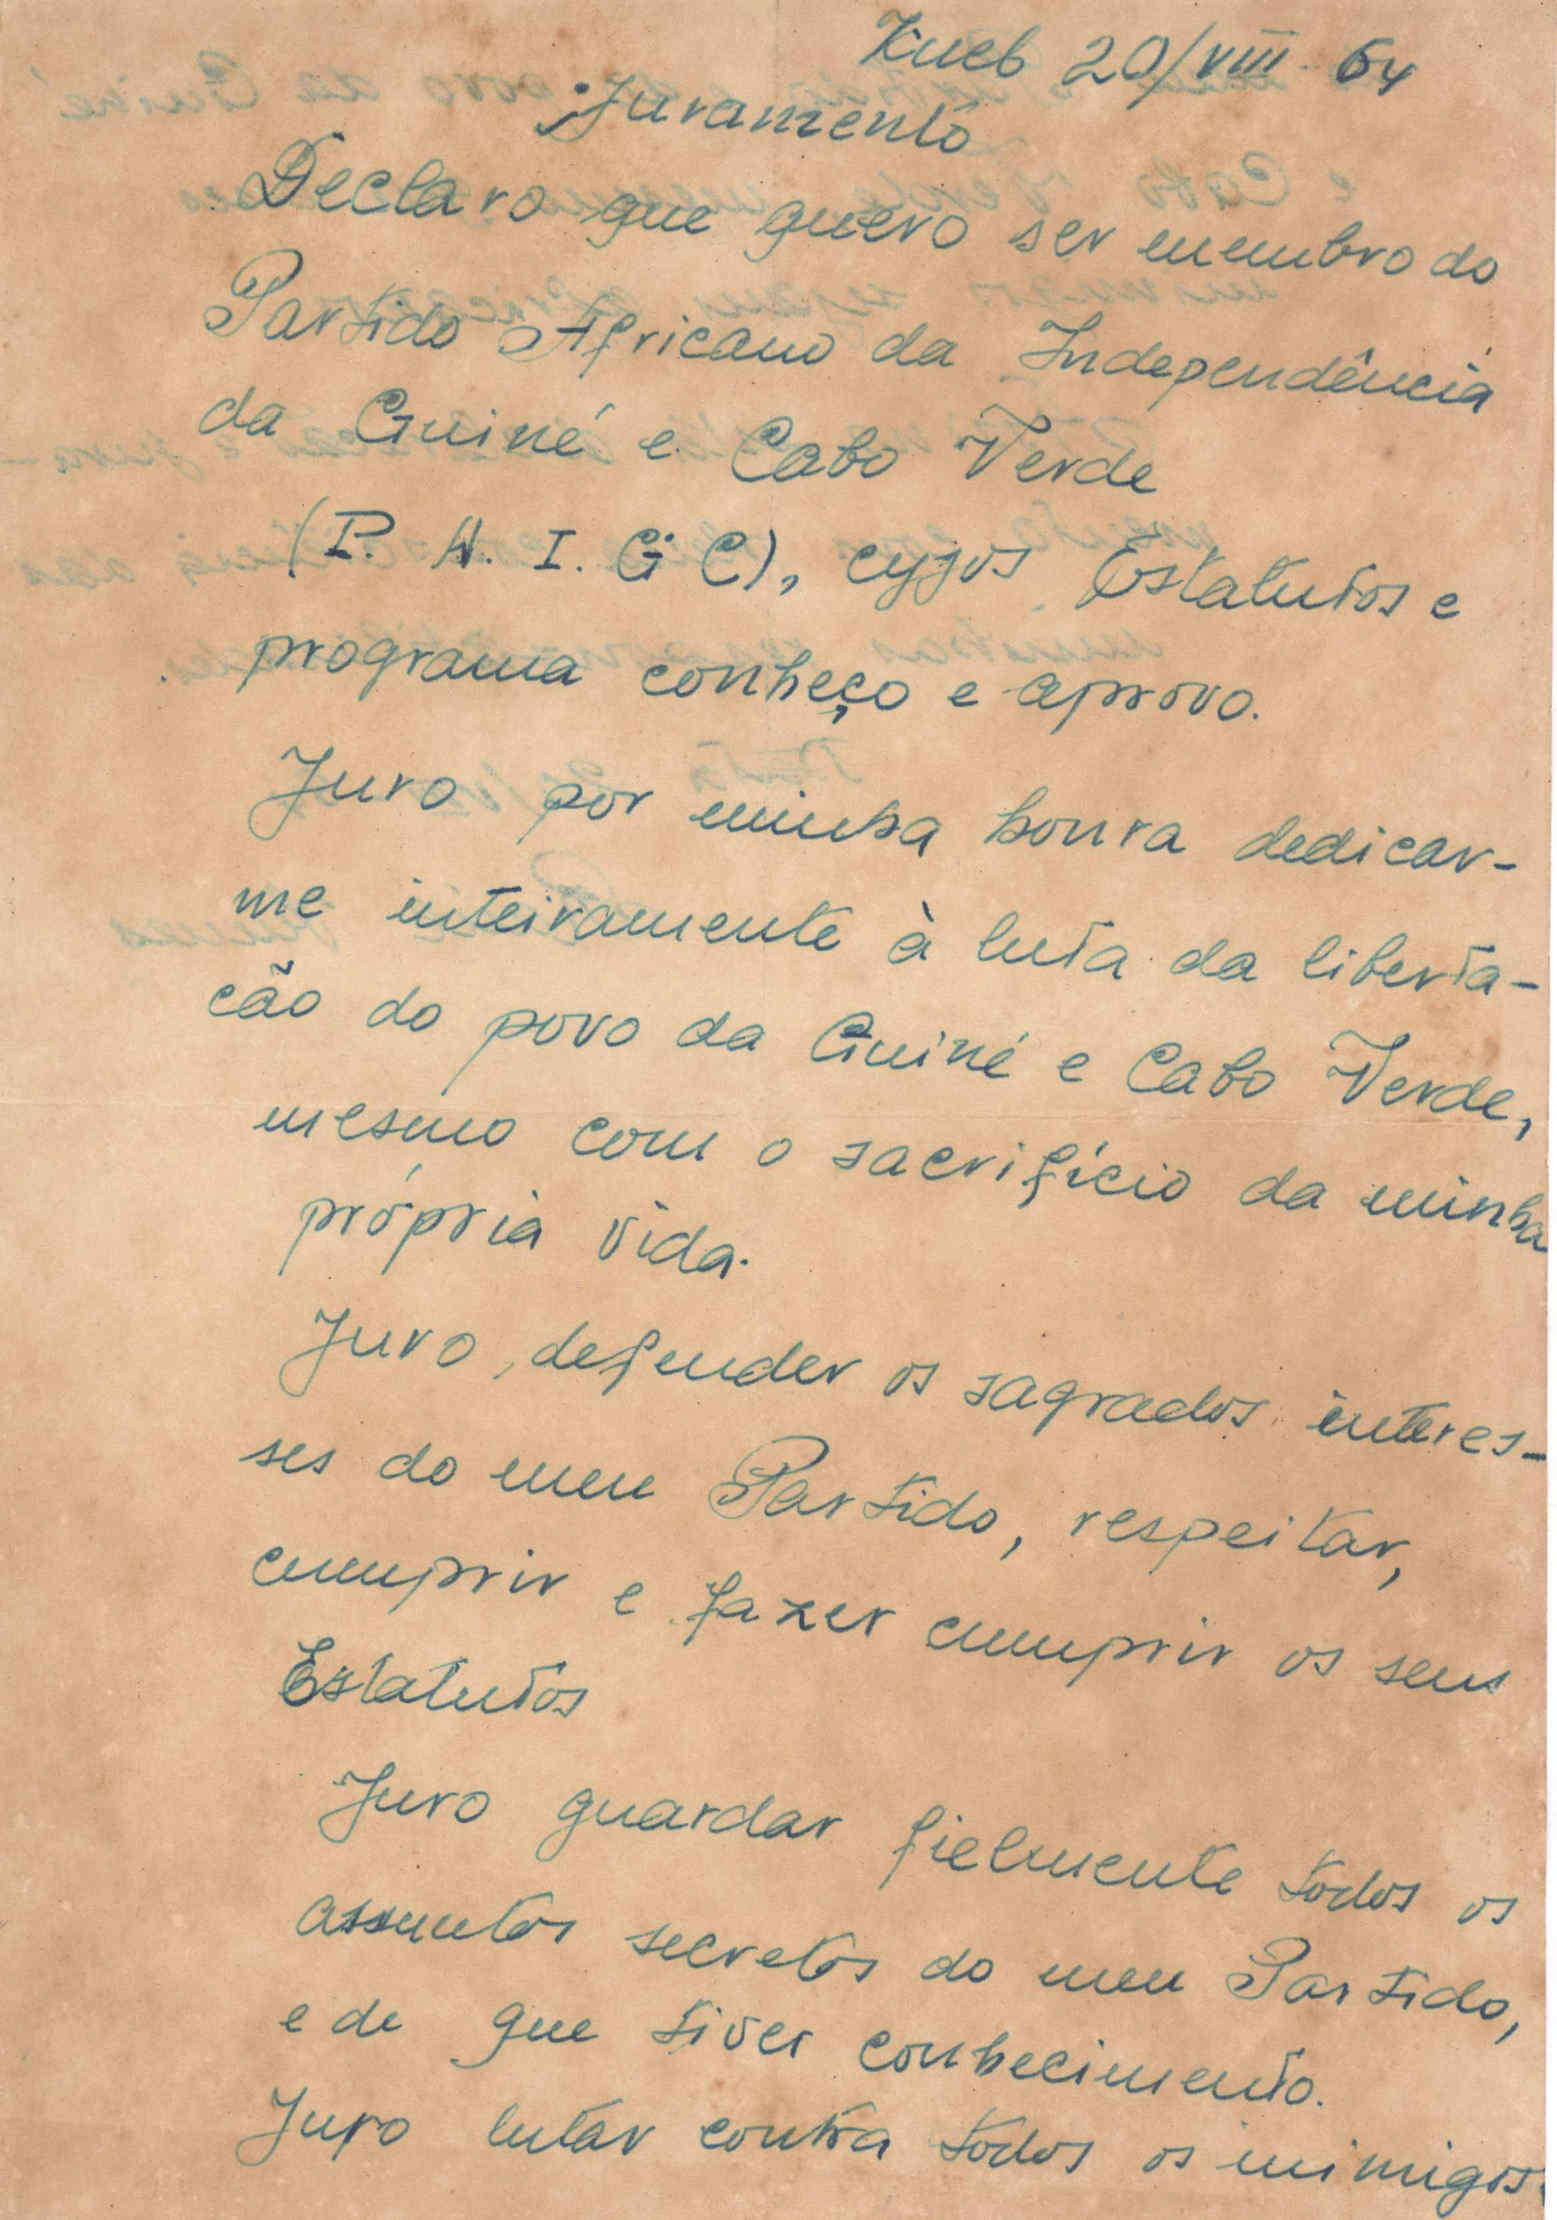 Киев 20/VIII. 64
Juramento
Declaro que quero ser membro do
Partido Africano da Independência
da Guiné e Cabo Verde
(P. A. I. G C), cujos Estatutos e
programa conheço e aprovo.
Juro por minha honra dedicar-
me inteiramente à luta da liberta-
cão do povo da Guiné e Cabo Verde,
mesmo com o sacrifício da minha
própria vida.
Juro, defender os sagrados interes-
ses do meu Partido, respeitar,
cumprir e fazer cumprir os seus
Estatutos
Juro guardar fielmente todos os
assuntos secretos do meu Partido,
e de que tiver conhecimento.
Juro lutar contra todos os inimigos